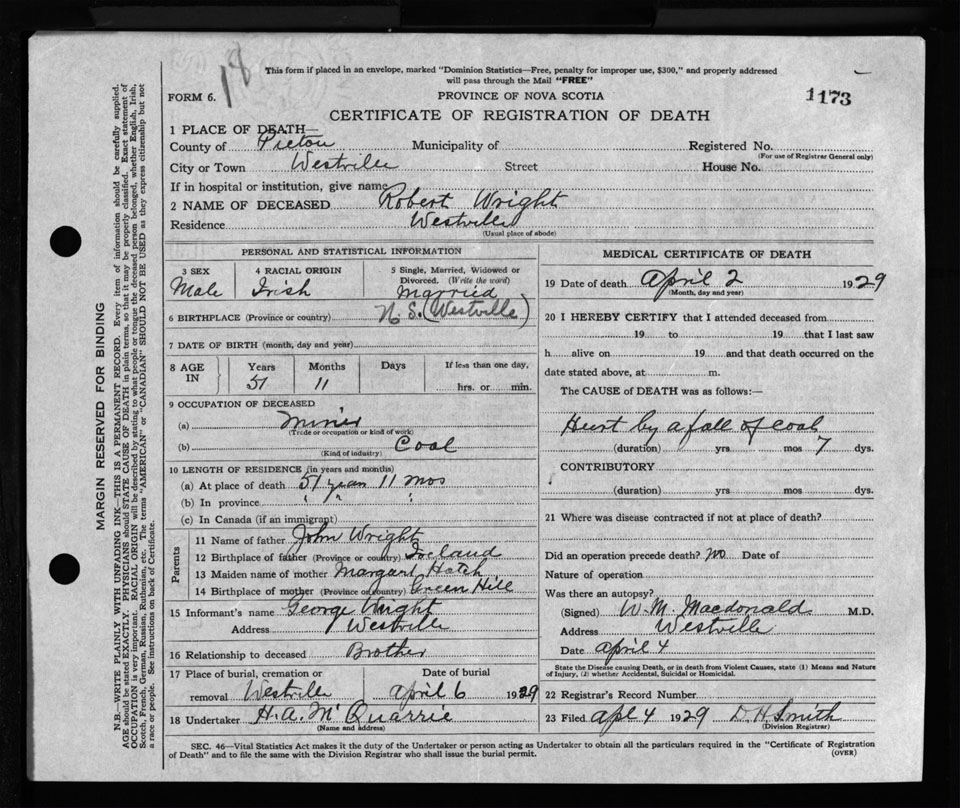 18
This form if placed in an envelope, marked "Dominion Statistics—Free, penalty for improper use, $300," and properly addressed
will pass through the Mail "FREE"
FORM 6.
PROVINCE OF NOVA SCOTIA
1173
CERTIFICATE OF REGISTRATION OF DEATH
1 PLACE OF DEATH—
County of Pictou Municipality of Registered No.
(For use of Registrar General only)
City or Town Westville Street House No.
If in hospital or institution, give name
2 NAME OF DECEASED Robert Wright
Residence Westville
(Usual place of abode)
PERSONAL AND STATISTICAL INFORMATION
3 SEX 4 RACIAL ORIGIN 5 Single, Married, Widowed or
Divorced. (Write the word)
Male Irish Married
6 BIRTHPLACE (Province or country) N. S. (Westville)
7 DATE OF BIRTH (month, day and year)
8 AGE IN Years Months Days If less than one day,
51 11 hrs. or min.
9 OCCUPATION OF DECEASED
(a) Miner
(Trade or occupation or kind of work)
(b) Coal
(Kind of industry)
10 LENGTH OF RESIDENCE (in years and months)
(a) At place of death 51 years 11 mos
(b) In province " " "
(c) In Canada (if an immigrant)
Parents
11 Name of father John Wright
12 Birthplace of father (Province or country) Ireland
13 Maiden name of mother Margaret Hatch
14 Birthplace of mother (Province or country) Green Hill
15 Informant's name George Wright
Address Westville
16 Relationship to deceased Brother
17 Place of burial, cremation or Date of burial
removal Westville April 6 1929
18 Undertaker H. A. McQuarrie
(Name and address)
MEDICAL CERTIFICATE OF DEATH
19 Date of death April 2 1929
(Month, day and year)
20 I HEREBY CERTIFY that I attended deceased from
19 to 19 that I last saw
h alive on 19 and that death occurred on the
date stated above, at m.
The CAUSE of DEATH was as follows:—
Hurt by a fall of coal
(duration) yrs mos 7 dys.
CONTRIBUTORY
(duration) yrs mos dys.
21 Where was disease contracted if not at place of death?
Did an operation precede death? no Date of
Nature of operation
Was there an autopsy?
(Signed) W. M. Macdonald M.D.
Address Westville
Date April 4
State the Disease causing Death, or in death from Violent Causes, state (1) Means and Nature
of Injury, (2) whether Accidental, Suicidal or Homicidal.
22 Registrar's Record Number
23 Filed Apl 4 1929 D. H. Smith
(Division Registrar)
SEC. 46—Vital Statistics Act makes it the duty of the Undertaker or person acting as Undertaker to obtain all the particulars required in the "Certificate of Registration
of Death" and to file the same with the Division Registrar who shall issue the burial permit.
(OVER)
MARGIN RESERVED FOR BINDING
N.B.—WRITE PLAINLY WITH UNFADING INK—THIS IS A PERMANENT RECORD. Every item of information should be carefully supplied.
AGE should be stated EXACTLY. PHYSICIANS should STATE CAUSE OF DEATH in plain terms, so that it may be properly classified. Exact statement of
OCCUPATION is very important. RACIAL ORIGIN will be described by stating to what people or tongue the deceased person belonged, whether English, Irish,
Scotch, French, German, Russian, Ruthenian, etc. The terms "AMERICAN" or "CANADIAN" SHOULD NOT BE USED as they express citizenship but not
a race or people. See instructions on back of Certificate.